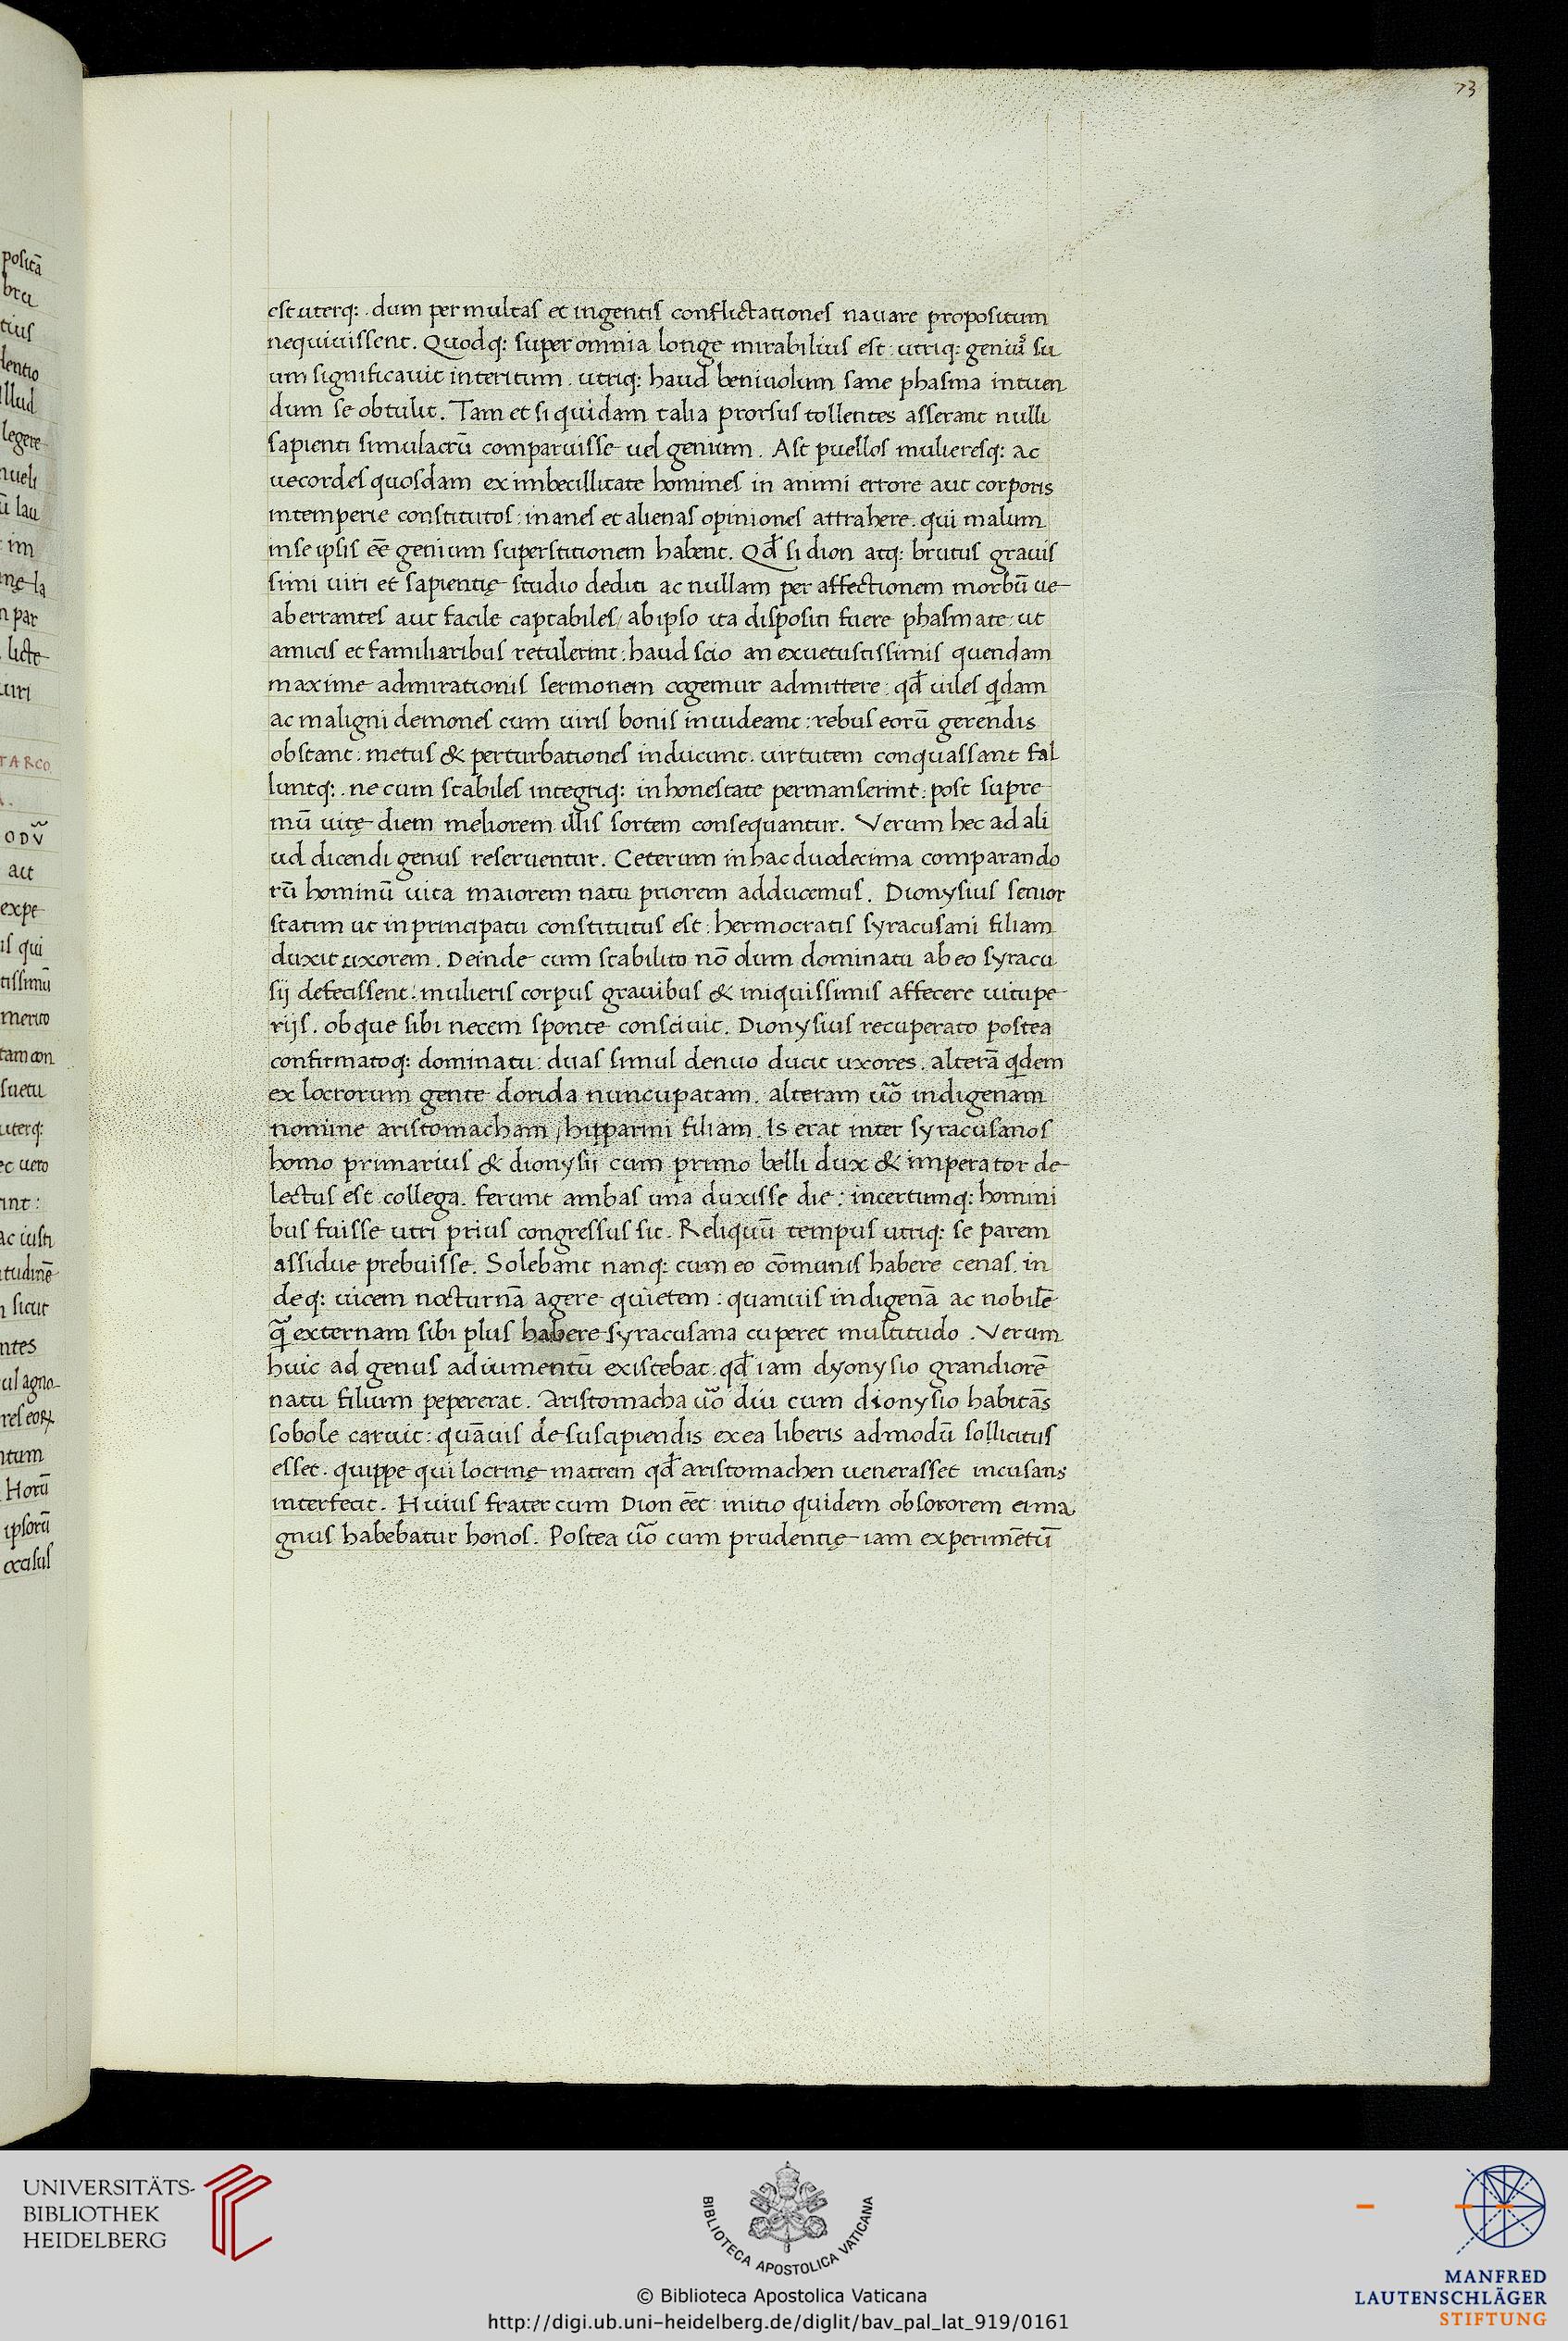 73
est uterq: . dum per multas et ingentis conflictationes navare propositum
nequivissent. Quodq: super omnia longe mirabilius est: utriq: geniū su
um significavit interitum. utriq: haud benivolum sane phasma intuen
dum se obtulit. Tam et si quidam talia prorsus tollentes asserant nulli
sapienti simulacrū comparuisse vel genium. Ast puellos mulieresq: ac
vecordes quosdam ex imbecillitate homines in animi errore aut corporis
intemperie constitutos: inanes et alienas opiniones attrahere. qui malum
in se ipsis eē genium superstitionem habent. Qđ si dion atq: brutus gravis
simi viri et sapientię studio dediti ac nullam per affectionem morbū ve
aberrantes aut facile captabiles/ ab ipso ita dispositi fuere phasmate: ut
amicis et familiaribus retulerint: haud scio an ex vetustissimis quendam
maxime admirationis sermonem cogemur admittere: qđ viles qdam
ac maligni demones cum viris bonis invideant: rebus eorū gerendis
obstant. metus & perturbationes inducunt. virtutem conquassant fal
luntq: . ne cum stabiles integriq: in honestate permanserint: post supre
mū vitę diem meliorem illis sortem consequantur. Verum hec ad ali
ud dicendi genus reserventur. Ceterum in hac duodecima comparando
rū hominū vita maiorem natu priorem adducemus. Dionysius senior
statim ut in principatu constitutus est: hermocratis syracusani filiam
duxit uxorem. Deinde cum stabilito nō dum dominatu ab eo syracu
sij defecissent: mulieris corpus gravibus & iniquissimis affecere vitupe
rijs. ob que sibi necem sponte conscivit. Dionysius recuperato postea
confirmatoq: dominatu: duas simul denuo ducit uxores. alterā qdem
ex locrorum gente dorida nuncupatam. alteram ūo indigenam
nomine aristomacham/ hipparini filiam. Is erat inter syracusanos
homo primarius & dionysii cum primo belli dux & imperator de
lectus est collega. ferunt ambas una duxisse die: incertumq: homini
bus fuisse utri prius congressus sit. Reliquū tempus utriq: se parem
assidue prebuisse. Solebant nanq: cum eo cōmunis habere cenas. in
deq: vicem nocturnā agere quietem: quanvis indigenā ac nobilē
q̄ externam sibi plus habere syracusana cuperet multitudo. Verum
huic ad genus adiumentū existebat. qđ iam dyonysio grandiorē
natu filium pepererat. Aristomacha ūo diu cum dionysio habitās
sobole caruit: quāvis de suscipiendis ex ea liberis admodū sollicitus
esset. quippe qui locrinę matrem qđ aristomachen venerasset incusans
interfecit. Huius frater cum Dion eēt: initio quidem ob sororem ei ma
gnus habebatur honos. Postea ūo cum prudentię iam experimētū
positā
bru
tius
llud
legere
im
n par
uiri
TARCO
ODV̄
aut
expe
is qui
tissimū
merito
tam con
suetu
uterq:
ec vero
int:
ac iusti
itudinē
sicut
ntes
ntum
Horū
ipsorū
occisus
UNIVERSITÄTS-
BIBLIOTHEK
HEIDELBERG
BIBLIOTECA APOSTOLICA VATICANA
© Biblioteca Apostolica Vaticana
http://digi.ub.uni-heidelberg.de/diglit/bav_pal_lat_919/0161
MANFRED
LAUTENSCHLÄGER
STIFTUNG